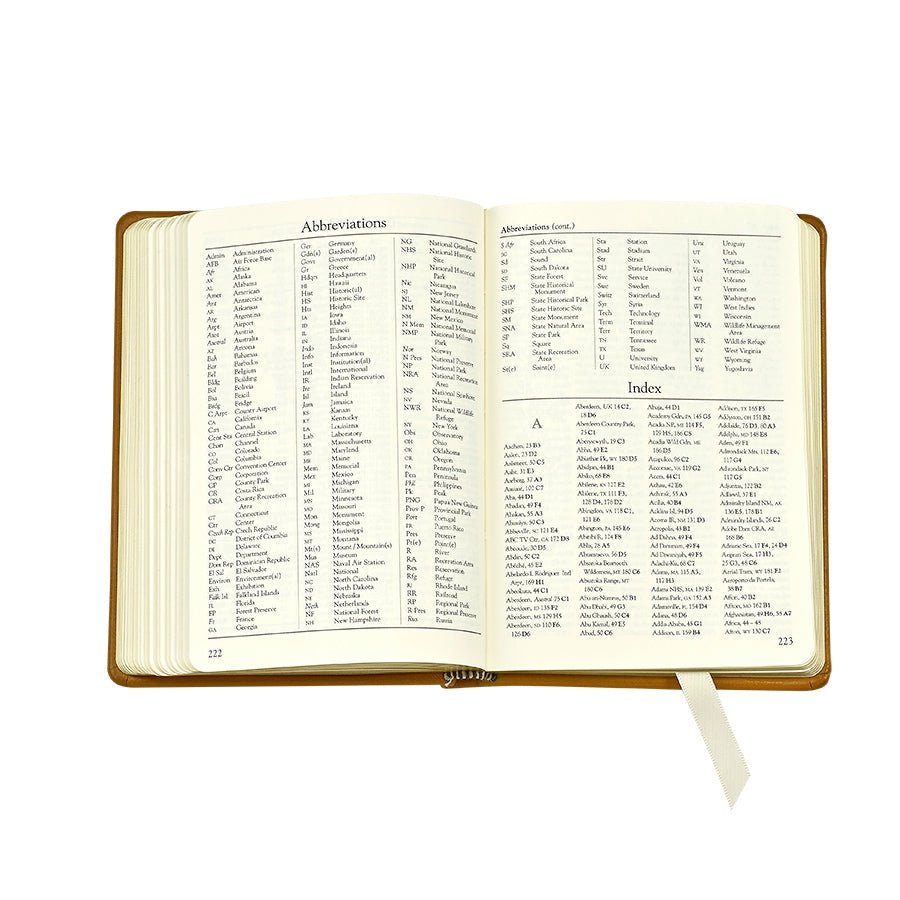 Abbreviations
Admin Administration
AFB Air Force Base
Afr Africa
AK Alaska
AL Alabama
Amer American
Ant Antarctica
AR Arkansas
Arg Argentina
Arpt Airport
Aust Austria
Austral Australia
AZ Arizona
Bah Bahamas
Bar Barbados
Bel Belgium
Bldg Building
Bol Bolivia
Bra Brazil
Brdg Bridge
C Arpt County Airport
CA California
Can Canada
Cent Sta Central Station
Chan Channel
CO Colorado
Col Columbia
Conv Ctr Convention Center
Corp Corporation
CP County Park
CR Costa Rica
CRA County Recreation
Area
CT Connecticut
Ctr Center
Czech Rep Czech Republic
DC District of Columbia
DE Delaware
Dept Department
Dom Rep Dominican Republic
El Sal El Salvador
Environ Environment(al)
Exh Exhibition
Falk Isl Falkland Islands
FL Florida
FP Forest Preserve
Fr France
GA Georgia
Ger Germany
Gdn(s) Garden(s)
Govt Government(al)
Gr Greece
Hdqrs Headquarters
HI Hawaii
Hist Historic(al)
HS Historic Site
Hts Heights
IA Iowa
ID Idaho
IL Illinois
IN Indiana
Indo Indonesia
Info Information
Inst Institution(al)
Intl International
IR Indian Reservation
Ire Ireland
Isl Island
Jam Jamaica
KS Kansas
KY Kentucky
LA Louisiana
Lab Laboratory
MA Massachusetts
MD Maryland
ME Maine
Mem Memorial
Mex Mexico
MI Michigan
Mil Military
MN Minnesota
MO Missouri
Mon Monument
Mong Mongolia
MS Mississippi
MT Montana
Mt(s) Mount / Mountain(s)
Mus Museum
NAS Naval Air Station
Natl National
NC North Carolina
ND North Dakota
NE Nebraska
Neth Netherlands
NF National Forest
NH New Hampshire
NG National Grasslands
NHS National Historic
Site
NHP National Historical
Park
Nic Nicaragua
NJ New Jersey
NL National Lakeshore
NM National Monument
NM New Mexico
N Mem National Memorial
NMP National Military
Park
Nor Norway
N Pres National Preserve
NP National Park
NRA National Recreation
Area
NS National Seashore
NV Nevada
NWR National Wildlife
Refuge
NY New York
Obs Observatory
OH Ohio
OK Oklahoma
OR Oregon
PA Pennsylvania
Pen Peninsula
Phil Philippines
Pk Peak
PNG Papua New Guinea
Prov P Provincial Park
Port Portugal
PR Puerto Rico
Pres Preserve
Pt(e) Point(e)
R River
RA Recreation Area
Res Reservation
Rfg Refuge
RI Rhode Island
RR Railroad
RP Regional Park
R Pres Regional Preserve
Rus Russia
222
Abbreviations (cont.)
S Afr South Africa
SC South Carolina
Sd Sound
SD South Dakota
SF State Forest
SHM State Historical
Monument
SHP State Historical Park
SHS State Historic Site
SM State Monument
SNA State Natural Area
SP State Park
Sq Square
SRA State Recreation
Area
St(e) Saint(e)
Sta Station
Stad Stadium
Str Strait
SU State University
Svc Service
Swe Sweden
Switz Switzerland
Syr Syria
Tech Technology
Term Terminal
Terr Territory
TN Tennessee
TX Texas
U University
UK United Kingdom
Uru Uruguay
UT Utah
VA Virginia
Ven Venezuela
Vol Volcano
VT Vermont
WA Washington
WI West Indies
WI Wisconsin
WMA Wildlife Management
Area
WR Wildlife Refuge
WV West Virginia
WY Wyoming
Yug Yugoslavia
Index
A
Aachen, 23 B3
Aalen, 23 D2
Aalsmeer, 50 C5
Aalst, 31 E3
Aarborg, 37 A3
Aba, 44 D1
Abadan, 49 F4
Abakan, 55 A3
Abbeville, SC 121 E4
ABC TV Ctr, CA 172 D8
Abcoude, 50 D5
Abdin, 50 C2
Abéché, 45 E2
Abelardo L Rodriguez Intl
Arpt, 169 H1
Aberdeen, Austral 75 C1
Aberdeen, ID 135 F2
Aberdeen, MS 129 H5
Aberdeen, SD 110 F6,
126 D6
Aberdeen, UK 18 C2,
18 D6
Aberdeen Country Park,
75 C1
Aberystwyth, 19 C3
Abha, 49 E2
Abiathar Pk, WY 180 D5
Abidjan, 44 B1
Abilene, KS 127 E2
Abilene, TX 111 F3,
128 D4, 178 D2
Abingdon, VA 118 C1,
121 E6
Abington, PA 145 E6
Abruzzo, 36 D5
Absaroka Beartooth
Wilderness, MT 180 C6
Absaroka Range, MT
180 C6
Abu an-Numrus, 50 B1
Abu Dhabi, 49 G3
Abu Ghaush, 50 C4
Abu Kamal, 49 E5
Abud, 50 C6
Abuja, 44 D1
Academy Gdn, PA 145 G5
Acadia NP, ME 114 F5,
179 H5, 186 C5
Acadia Wild Gdn, ME
186 D5
Acapulco, 96 C2
Accomac, VA 119 G2
Accra, 44 C1
Achau, 42 E6
Achinsk, 55 A3
Acilia, 40 B4
Acklins Isl, 94 D5
Acoma IR, NM 131 D3
Acropolis, 43 B2
Ad Dahna, 49 F4
Ad Dammam, 49 F4
Ad Diwaniyah, 49 F5
Adachi-Ku, 68 C7
Adams, MA 115 A3,
117 H3
Adams NHS, MA 139 E2
Adams Park, GA 157 A3
Adamsville, FL 154 D4
Addis Ababa, 45 G1
Addison, IL 159 B4
Addison, TX 165 F5
Addyston, OH 151 B2
Adelaide, 76 D3, 80 A3
Adelphi, MD 148 E8
Aden, 49 F1
Adirondack Mts, 112 E6,
117 G4
Adirondack Park, NY
117 G5
Adjuntas, 102 B2
Adlawd, 37 E1
Admiralty Island NM, AK
136 E5, 178 B1
Admiralty Islands, 76 C2
Adobe Dam CRA, AZ
168 B6
Adriatic Sea, 17 F4, 24 D4
Aegean Sea, 17 H3,
25 G3, 48 C6
Aerial Tram, WY 181 F2
Aeroporto da Portela,
38 B7
Affton, MO 162 B1
Afghanistan, 49 H6, 55 A7
Africa, 44 – 45
Afton, WY 130 C7
223